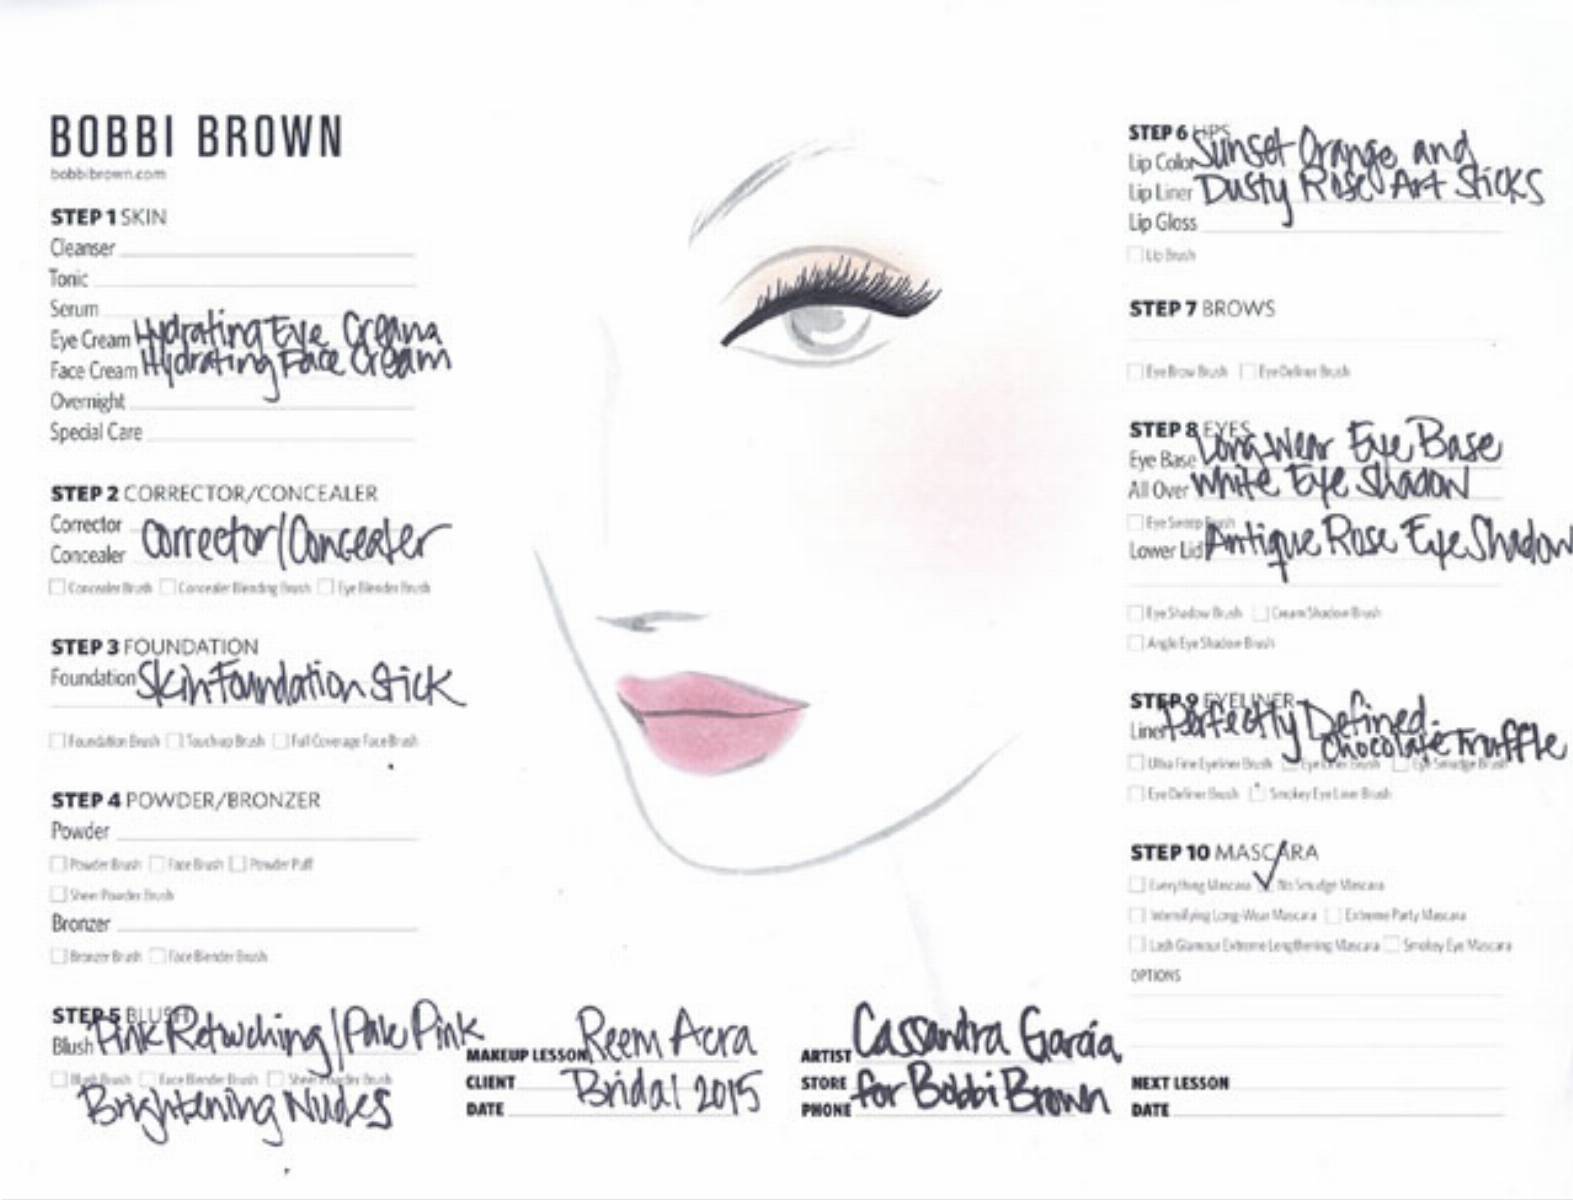 BOBBI BROWN
bobbibrown.com
STEP 1 SKIN
Cleanser
Tonic
Serum
Eye Cream Hydrating Eye Creama
Face Cream Hydrating Face Cream
Overnight
Special Care
STEP 2 CORRECTOR/CONCEALER
Corrector
Concealer Corrector/Concealer
Concealer Brush Concealer Blending Brush Eye Blender Brush
STEP 3 FOUNDATION
Foundation Skin Foundation Stick
Foundation Brush Touch up Brush Full Coverage Face Brush
STEP 4 POWDER/BRONZER
Powder
Powder Brush Face Brush Powder Puff
Sheer Powder Brush
Bronzer
Bronzer Brush Face Blender Brush
STEP 5 BLUSH
Blush Pink Retouching/Pale Pink
Blush Brush Face Blender Brush Sheer Powder Brush
Brightening Nudes
MAKEUP LESSON Reem Acra
CLIENT Bridal 2015
DATE
ARTIST Cassandra Garcia
STORE for Bobbi Brown
PHONE
STEP 6 LIPS
Lip Color Sunset Orange and
Lip Liner Dusty Rose Art Sticks
Lip Gloss
Lip Brush
STEP 7 BROWS
Eye Brow Brush Eye Definer Brush
STEP 8 EYES
Eye Base Long-Wear Eye Base
All Over White Eye Shadow
Eye Sweep Brush
Lower Lid Antique Rose Eye Shadow
Eye Shadow Brush Cream Shadow Brush
Angle Eye Shadow Brush
STEP 9 EYELINER
Liner Perfectly Defined
Chocolate Truffle
Ultra Fine Eyeliner Brush Eye Liner Brush Eye Smudge Brush
Eye Definer Brush Smokey Eye Liner Brush
STEP 10 MASCARA
Everything Mascara No Smudge Mascara
Intensifying Long-Wear Mascara Extreme Party Mascara
Lash Glamour Extreme Lengthening Mascara Smokey Eye Mascara
OPTIONS
NEXT LESSON
DATE